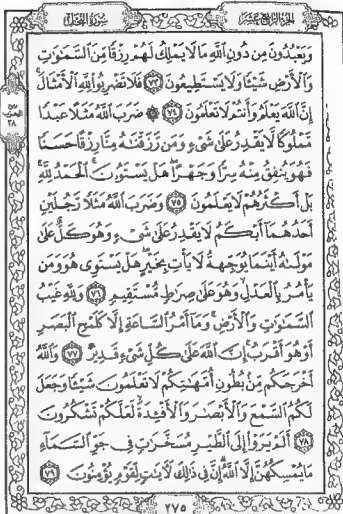 الجزء الرابع عشر
سورة النحل
وَيَعْبُدُونَ مِن دُونِ اللَّهِ مَا لَا يَمْلِكُ لَهُمْ رِزْقًا مِّنَ السَّمَاوَاتِ
وَالْأَرْضِ شَيْئًا وَلَا يَسْتَطِيعُونَ ٧٣ فَلَا تَضْرِبُوا لِلَّهِ الْأَمْثَالَ
إِنَّ اللَّهَ يَعْلَمُ وَأَنتُمْ لَا تَعْلَمُونَ ٧٤ ۞ ضَرَبَ اللَّهُ مَثَلًا عَبْدًا
مَّمْلُوكًا لَّا يَقْدِرُ عَلَىٰ شَيْءٍ وَمَن رَّزَقْنَاهُ مِنَّا رِزْقًا حَسَنًا
فَهُوَ يُنفِقُ مِنْهُ سِرًّا وَجَهْرًا هَلْ يَسْتَوُونَ الْحَمْدُ لِلَّهِ
بَلْ أَكْثَرُهُمْ لَا يَعْلَمُونَ ٧٥ وَضَرَبَ اللَّهُ مَثَلًا رَّجُلَيْنِ
أَحَدُهُمَا أَبْكَمُ لَا يَقْدِرُ عَلَىٰ شَيْءٍ وَهُوَ كَلٌّ عَلَىٰ
مَوْلَاهُ أَيْنَمَا يُوَجِّههُّ لَا يَأْتِ بِخَيْرٍ هَلْ يَسْتَوِي هُوَ وَمَن
يَأْمُرُ بِالْعَدْلِ وَهُوَ عَلَىٰ صِرَاطٍ مُّسْتَقِيمٍ ٧٦ وَلِلَّهِ غَيْبُ
السَّمَاوَاتِ وَالْأَرْضِ وَمَا أَمْرُ السَّاعَةِ إِلَّا كَلَمْحِ الْبَصَرِ
أَوْ هُوَ أَقْرَبُ إِنَّ اللَّهَ عَلَىٰ كُلِّ شَيْءٍ قَدِيرٌ ٧٧ وَاللَّهُ
أَخْرَجَكُم مِّن بُطُونِ أُمَّهَاتِكُمْ لَا تَعْلَمُونَ شَيْئًا وَجَعَلَ
لَكُمُ السَّمْعَ وَالْأَبْصَارَ وَالْأَفْئِدَةَ لَعَلَّكُمْ تَشْكُرُونَ
٧٨ أَلَمْ يَرَوْا إِلَى الطَّيْرِ مُسَخَّرَاتٍ فِي جَوِّ السَّمَاءِ
مَا يُمْسِكُهُنَّ إِلَّا اللَّهُ إِنَّ فِي ذَٰلِكَ لَآيَاتٍ لِّقَوْمٍ يُؤْمِنُونَ ٧٩
٢٧٥
الحزب
٢٨